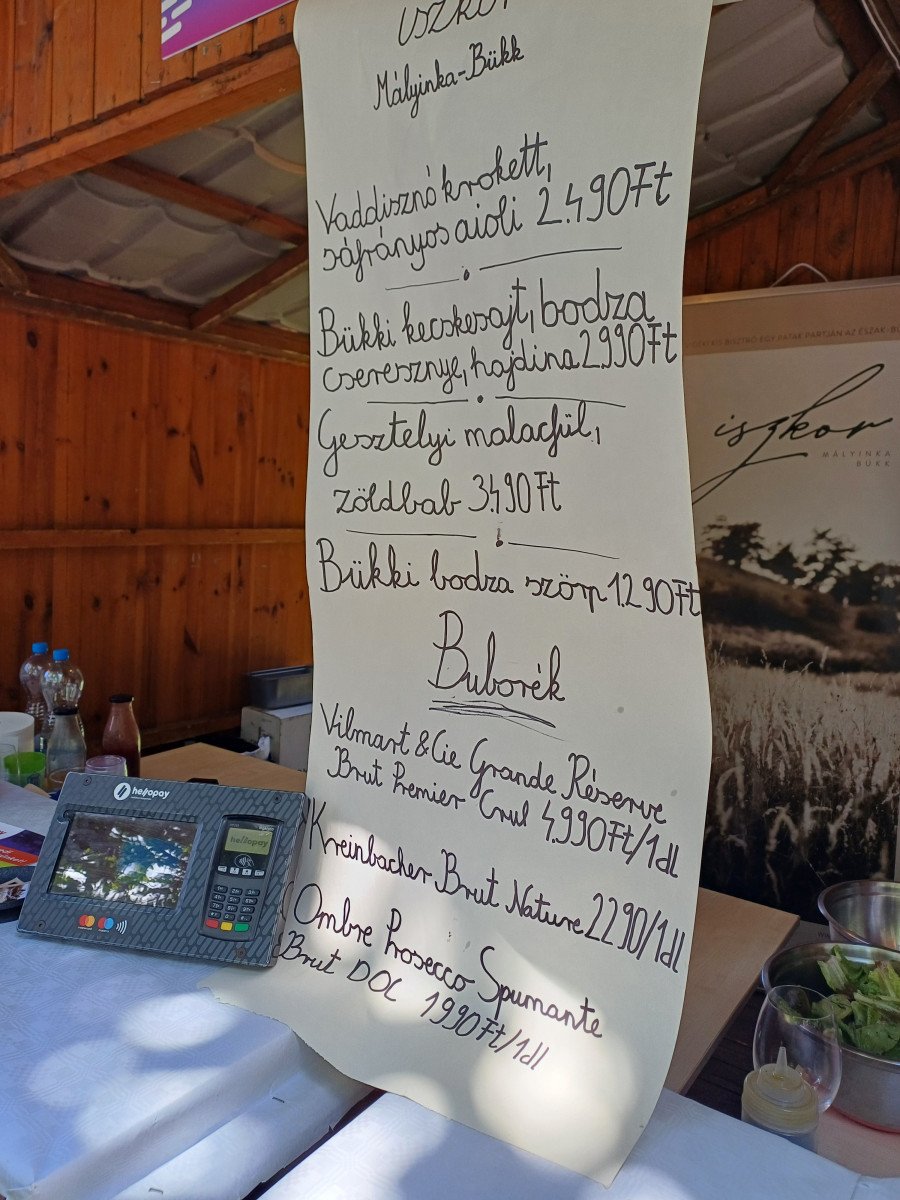 iszkor
Mályinka-Bükk
Vaddisznó krokett,
sáfrányos aioli 2.490Ft
Bükki kecskesajt, bodza
cseresznye, hajdina 2.990Ft
Gesztelyi malacfül,
zöldbab 3.490Ft
Bükki bodza szörp 1.290Ft
Buborék
Vilmart & Cie Grande Réserve
Brut Premier Crul 4.990Ft/1dl
Kreinbacher Brut Nature 2290/1dl
Ombre Prosecco Spumante
Brut DOC 1990Ft/1dl
hellopay
hellopay
BISZTRÓ EGY PATAK PARTJÁN AZ ÉSZAKI
iszkor
MÁLYINKA
BÜKK